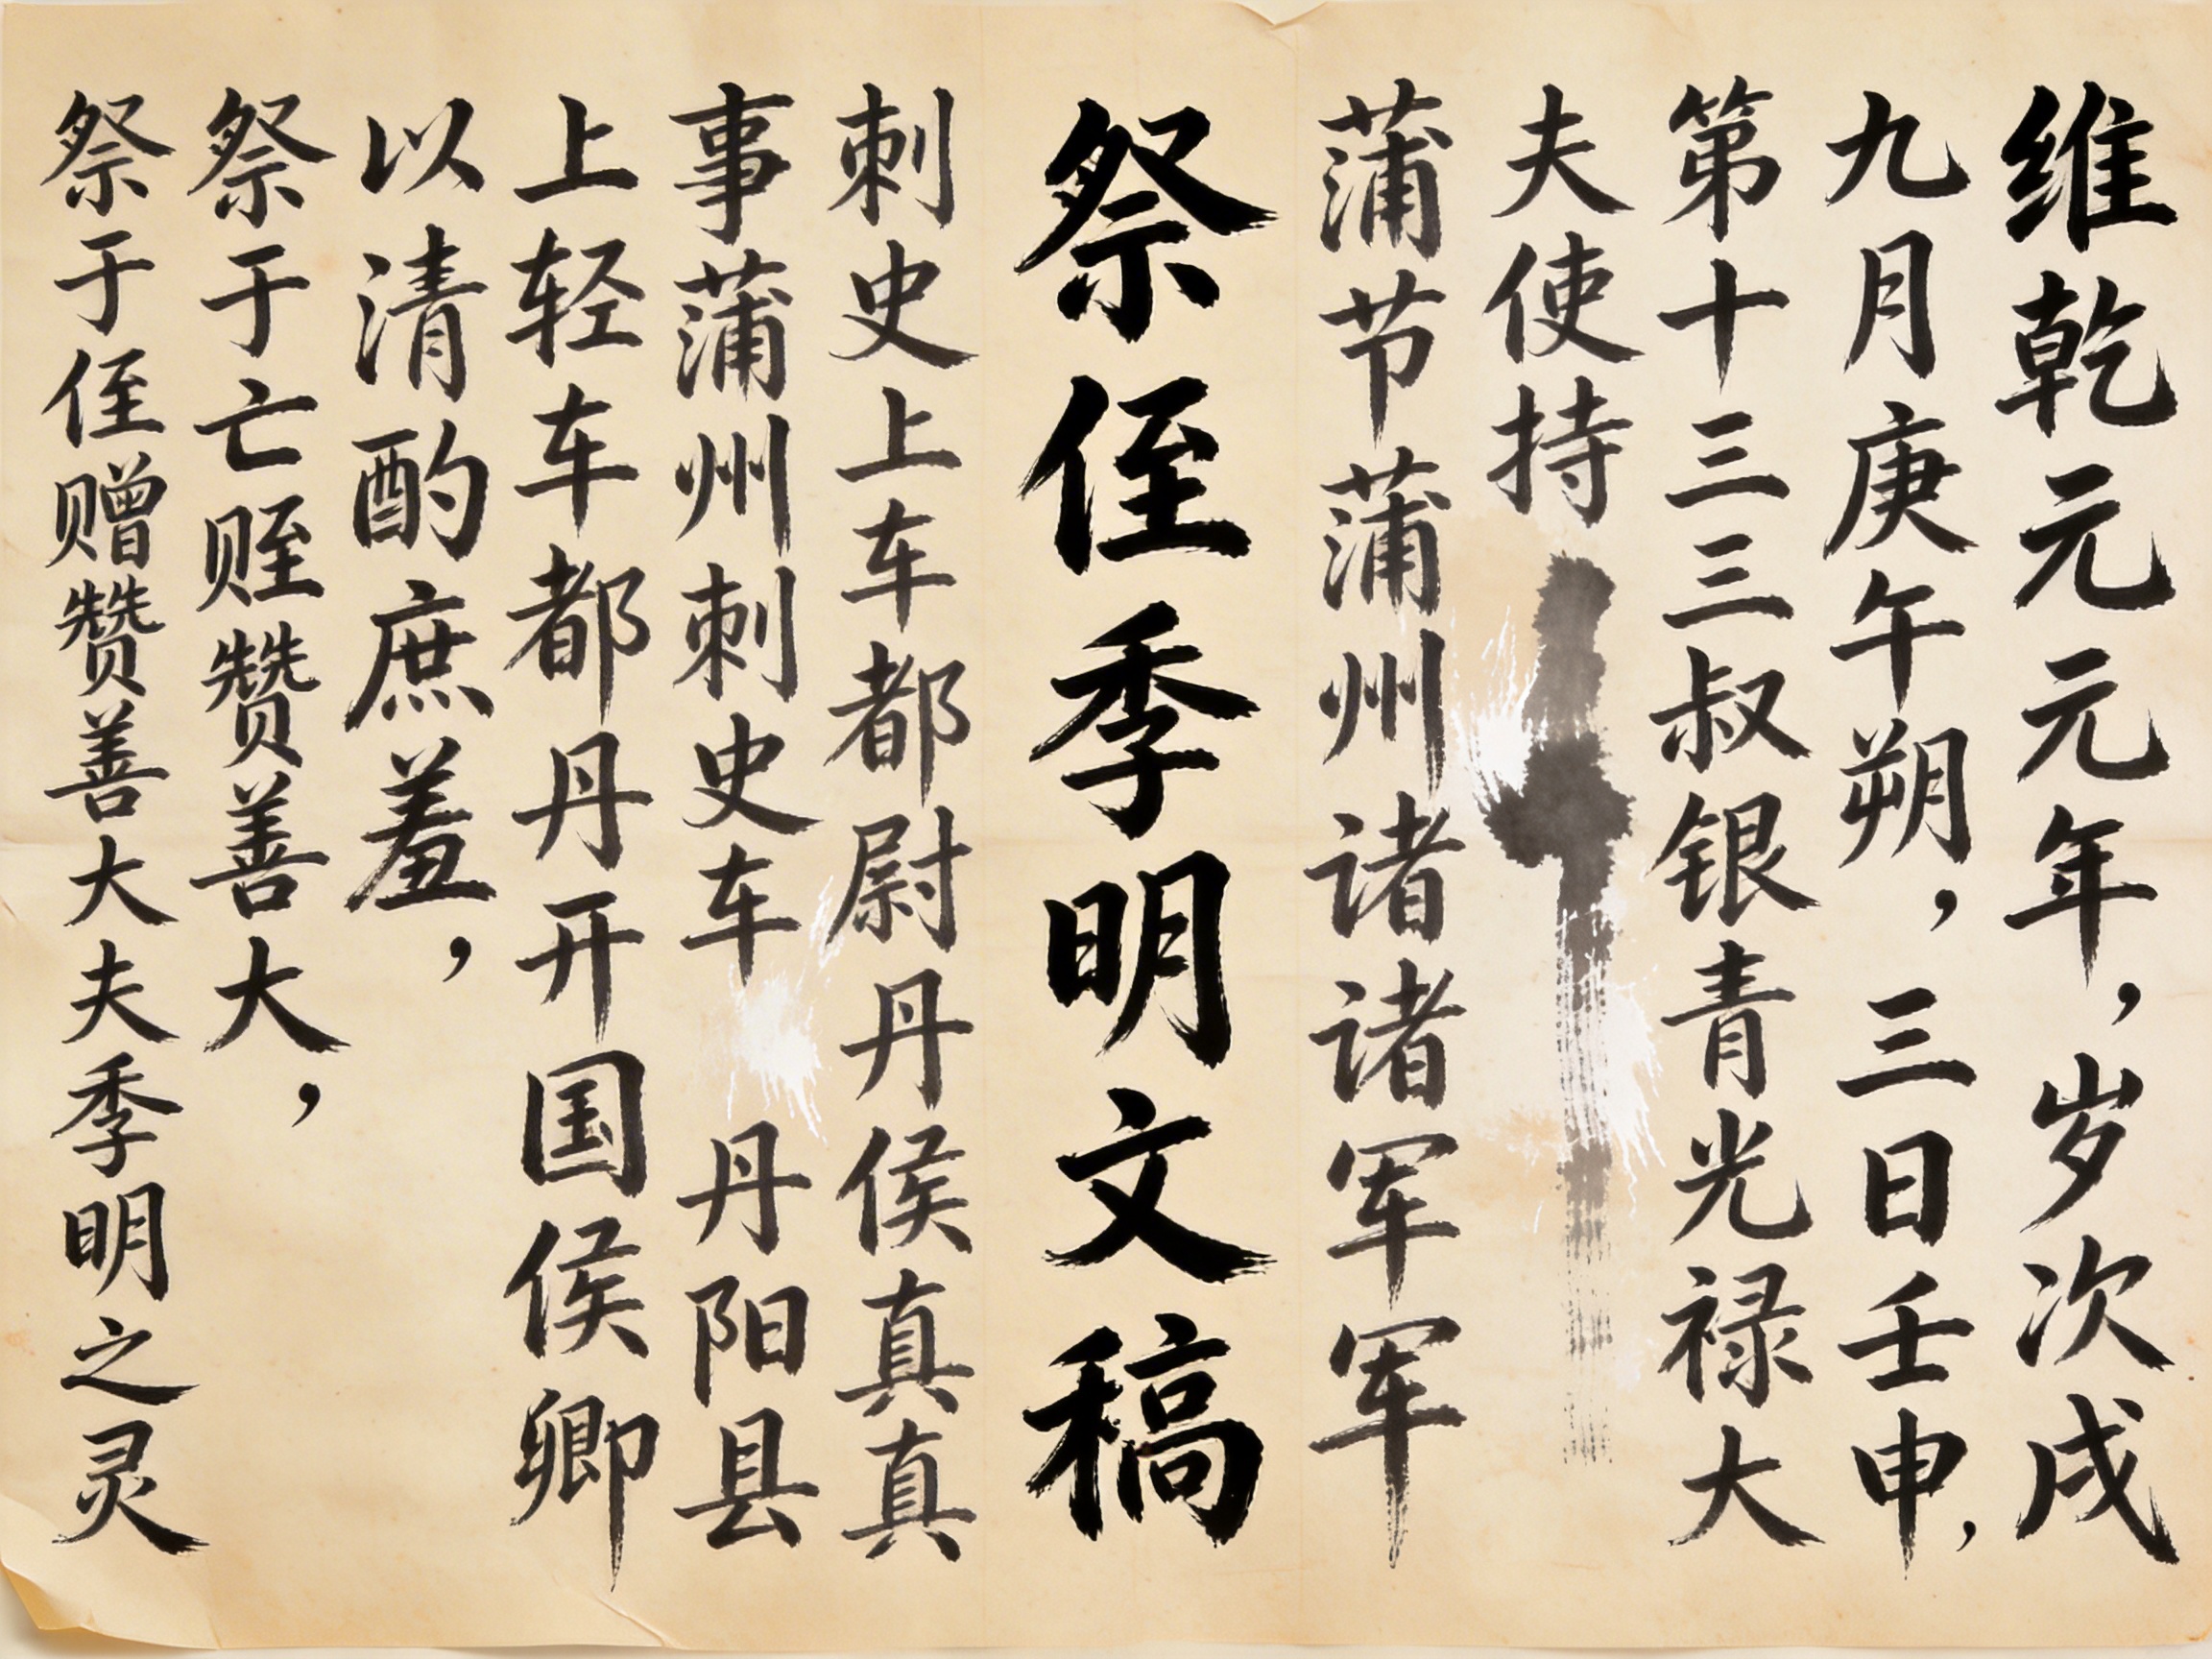 维乾元元年，岁次戌
九月庚午朔，三日壬申，
第十三三叔银青光禄大
夫使持
蒲节蒲州诸诸军军
祭侄季明文稿
刺史上车都尉丹侯真真
事蒲州刺史车丹阳县
上轻车都丹开国侯卿
以清酌庶羞，
祭于亡赞善大，
祭于侄赠赞善大夫季明之灵